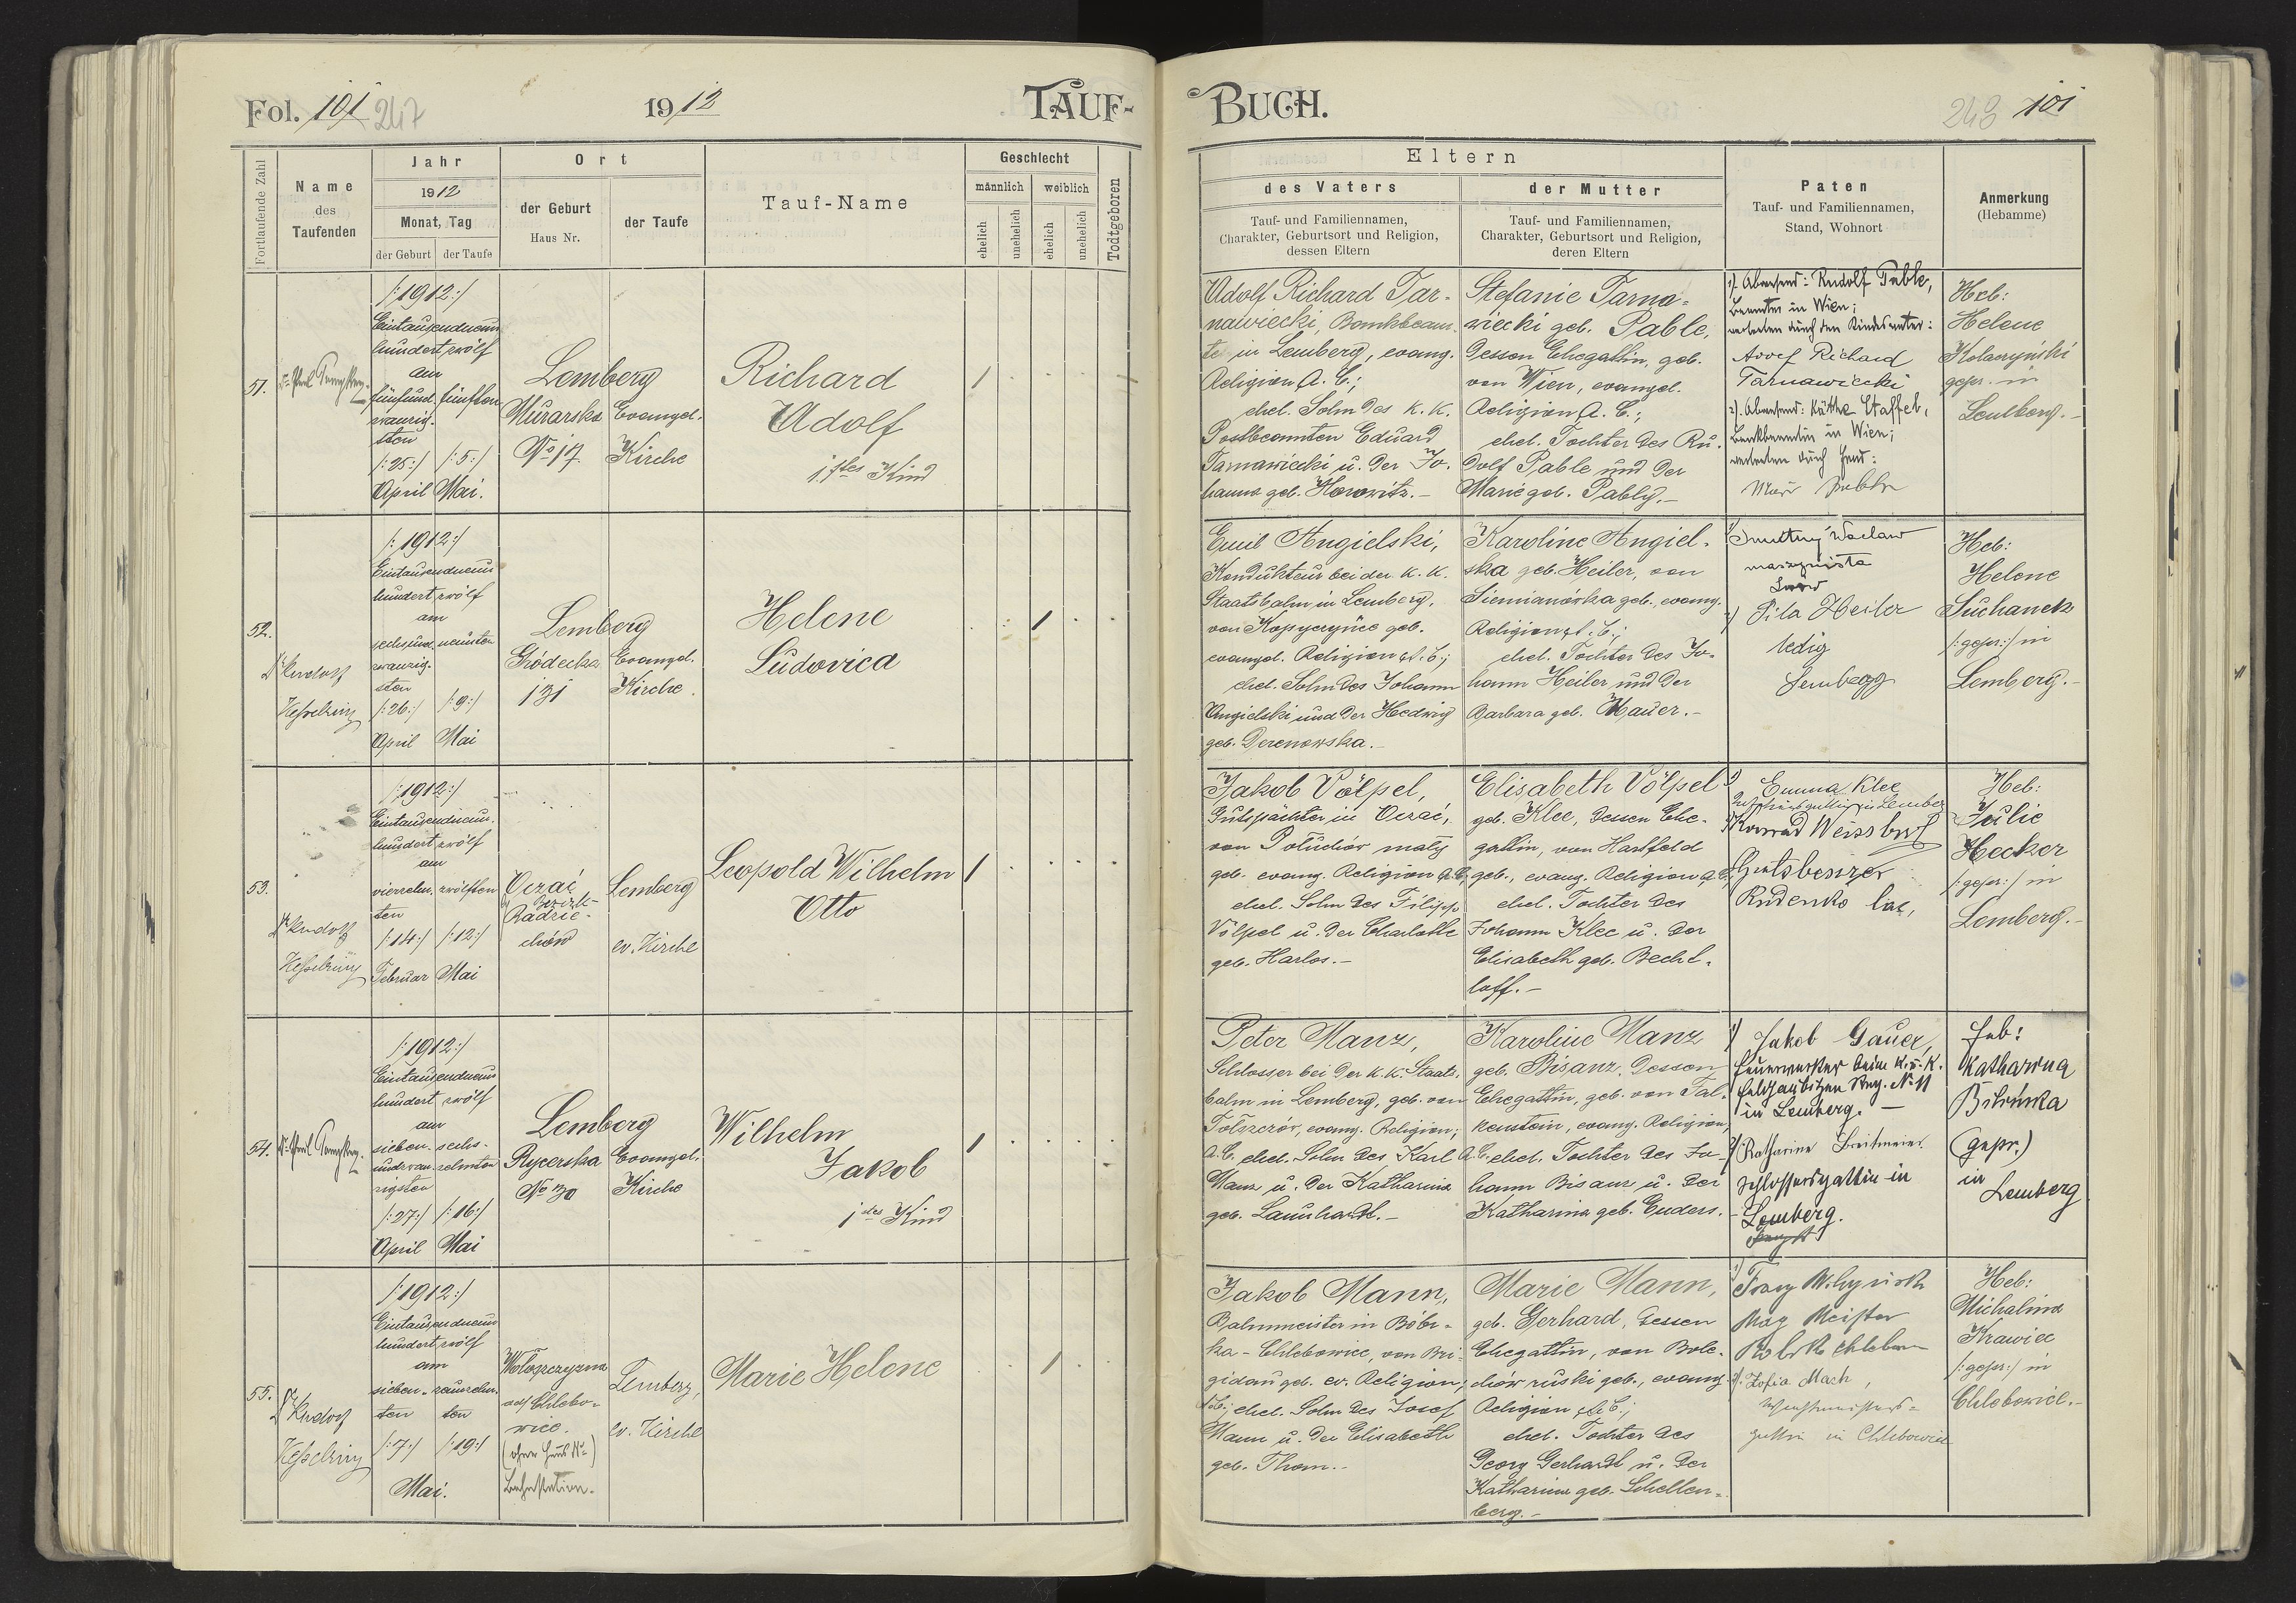 Fol. 101 247
1912
TAUF-
Fortlaufende Zahl
Name
des
Taufenden
Jahr
1912
Monat, Tag
der Geburt
der Taufe
Ort
der Geburt
Haus Nr.
der Taufe
Tauf-Name
Geschlecht
männlich
weiblich
ehelich
unehelich
ehelich
unehelich
Todtgeboren
51.
/:1912:/
Eintausendneun
hundert zwölf
am
fünfund- fünften
zwanzig-
sten
/:25:/ /:5:/
April Mai.
Lemberg
Murarska Evangel.
No 17. Kirche
Richard
Adolf
1stes Kind
52.
Dr Rudolf
Kesselring
/:1912:/
Eintausendneun
hundert zwölf
am
sechsund- neunten
zwanzig-
sten
/:26:/ /:9:/
April Mai
Lemberg
Gródecka Evangel.
131 Kirche.
Helene
Ludovica
53.
Dr Rudolf
Kesselring
/:1912:/
Eintausendneun-
hundert zwölf
am
vierzehn- zwölften
ten
/:14:/ /:12:/
Februar Mai
Radzie-
chów
Lemberg
ev. Kirche
Leopold Wilhelm
Otto
54.
/:1912:/
Eintausendneun
hundert zwölf
am
sieben- sechs-
undzwan- zehnten
zigsten
/:27:/ /:16:/
April Mai
Lemberg
Rycerska Evangel.
No 30 Kirche
Wilhelm
Jakob
1stes Kind
55.
Dr Rudolf
Kesselring
/:1912:/
Eintausendneun
hundert zwölf
am
sieben- neunzehn-
ten ten
/:7:/ /:19:/
Mai.
Wołoszczyzna
ad Chlebo-
wice.
(ohne Haus No)
Bahnstation.
Lemberg,
ev. Kirche
Marie Helene
BUCH.
248 101
Eltern
des Vaters
Tauf- und Familiennamen,
Charakter, Geburtsort und Religion,
dessen Eltern
der Mutter
Tauf- und Familiennamen,
Charakter, Geburtsort und Religion,
deren Eltern
Paten
Tauf- und Familiennamen,
Stand, Wohnort
Anmerkung
(Hebamme)
Adolf Richard Tar-
nawiecki, Bankbeam-
te in Lemberg, evang.
Religion A. C.;
ehel. Sohn des K. K.
Postbeamten Eduard
Tarnawiecki u. der Jo-
hanna geb. Horowitz.-
Stefanie Tarna-
wiecki geb. Pable,
dessen Ehegattin, geb.
von Wien, evangel.
Religion A. C.;
ehel. Tochter des Ru-
dolf Pable und der
Marie geb. Pably.-
1). Abwesend: Rudolf Pable,
Beamter in Wien;
vertreten durch den Kindesvater:
Adolf Richard
Tarnawiecki
2). Abwesend: Käthe Staffel,
Bankbeamtin in Wien;
vertreten durch Frau:
Heb:
Helene
gepr. in
Lemberg.-
Emil Angielski,
Kondukteur bei der K. K.
Staatsbahn in Lemberg,
von Kopyczyńce geb.
evangel. Religion A. C.;
ehel. Sohn des Johann
Angielski und der Hedwig
geb. Derenowska.-
Karoline Angiel-
ska geb. Heiler, von
Siemianówka geb., evang.
Religion A. C.;
ehel. Tochter des Jo-
hann Heiler und der
Barbara geb. Mauer.-
1) Smutny Wacław
maszynista
Lwów
2) Pila Heiler
ledig
Lemberg
Heb:
Helene
Suchanek
/:gepr:/ in
Lemberg.-
Jakob Völpel,
von Potudiór mały
geb. evang. Religion A. C.,
ehel. Sohn des Filipp
Völpel u. der Charlotte
geb. Harlos.-
Elisabeth Völpel
geb. Klee, dessen Ehe-
gattin, von Hartfeld
geb., evang. Religion A. C.
ehel. Tochter des
Johann Klee u. der
Elisabeth geb. Becht-
loff.-
1) Emma Klee
Gutsbesizer
Rudenko lac,
Heb:
Julie
Hecker
/:gepr:/ in
Lemberg.-
Peter Manz,
Schlosser bei der K. K. Staats-
bahn in Lemberg, geb. von
Tołszczów, evang. Religion;
A. C. ehel. Sohn des Karl
Manz u. der Katharina
geb. Launhardt.-
Karoline Manz
geb. Bisanz, dessen
Ehegattin, geb. von Fal-
kenstein, evang. Religion,
A. C. ehel. Tochter des Jo-
hann Bisanz u. der
Katharina geb. Enders.-
1) Jakob Gauer,
Feuerwerker beim K. u. K.
Feldhaubitzen Reg. No 11
in Lemberg.-
2) Katharina Breitmeier
Schlossersgattin in
Lemberg.
Heb:
Katharina
(gepr.)
in
Lemberg
Jakob Mann,
Bahnmeister in Bóbr-
ka-Chlebowice, von Bri-
gidau geb. ev. Religion;
A. C.; ehel. Sohn des Josef
Mann u. der Elisabeth
geb. Thom.-
Marie Mann,
geb. Gerhard, dessen
Ehegattin, von Bole-
chów ruski geb., evang.
Religion A. C.;
ehel. Tochter des
Georg Gerhardt u. der
Katharina geb. Schellen-
berg.-
2). Zofia Mach,
gattin in Chlebowice
Heb:
Michalina
Krawiec
/:gepr:/ in
Chlebowice.-